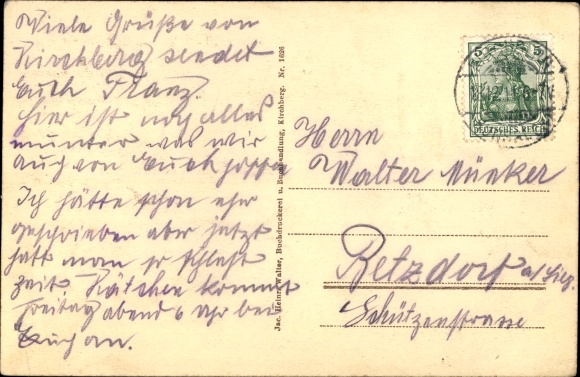 Viele Grüße von
Kirchberg sendet
Euch Franz.
Hier ist noch alles
munter was wir
auch von Euch hoffen
Ich hätte schon eher
geschrieben aber jetzt
hatt man so schlecht
Zeit. Kätchen kommt
Freitag abend 6 Uhr bei
Euch an.
Jac. Heinr. Walter, Buchdruckerei u. Buchhandlung, Kirchberg. Nr. 1626
5 5
DEUTSCHES REICH
Herrn
Walter Münker
Betzdorf a/Sieg.
Schützenstrasse